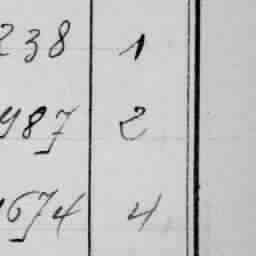 238 1
987 2
1674 4